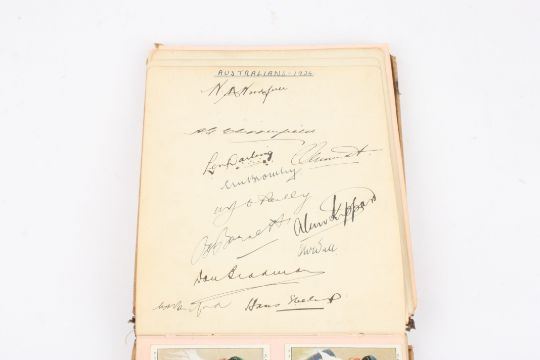 AUSTRALIANS - 1934
W M Woodfull
W A Oldfield
Len Darling C V Grimmett
E H Bromley
W J O'Reilly
B A Barnett Alan Kippax
T W Wall
Don Bradman
W H Ponsford Hans Ebeling